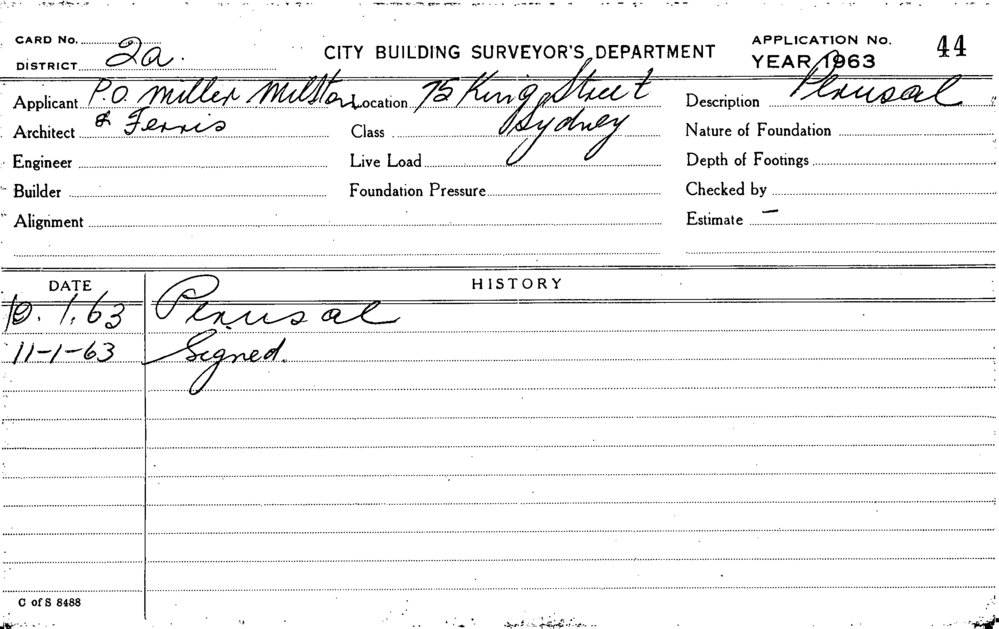 CARD No.
DISTRICT 2a.
CITY BUILDING SURVEYOR'S DEPARTMENT
APPLICATION No. 44
YEAR 1963
Applicant P.O. Miller Milston Location 75 King Street Description Perusal
Architect & Ferris Class Sydney Nature of Foundation
Engineer Live Load Depth of Footings
Builder Foundation Pressure Checked by
Alignment Estimate –
DATE HISTORY
10.1.63 Perusal
11-1-63 Signed.
C of S 8488